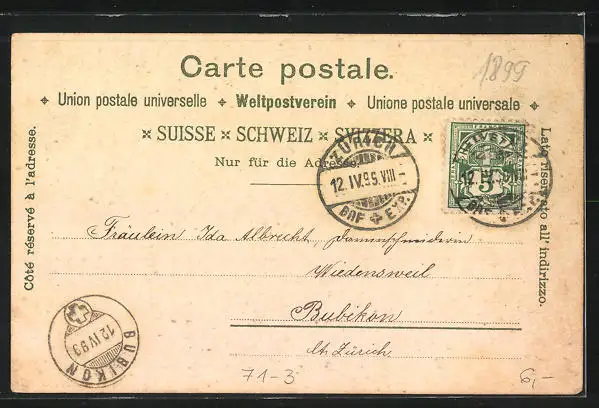 1899
Carte postale.
Union postale universelle ✦ Weltpostverein ✦ Unione postale universale
SUISSE × SCHWEIZ × SVIZZERA
Nur für die Adresse.
Côté réservé à l'adresse.
Lato riservato all' indirizzo.
ZÜRICH
12.IV.99.VIII-
BRF EXP.
HELVETIA
5
12.IV.99.VIII
BRF EXP.
Fräulein Ida Albrecht, Damenschneiderin
Wiedensweil
Bubikon
Kt. Zürich
BUBIKON
12 IV 99
71-3
6,-